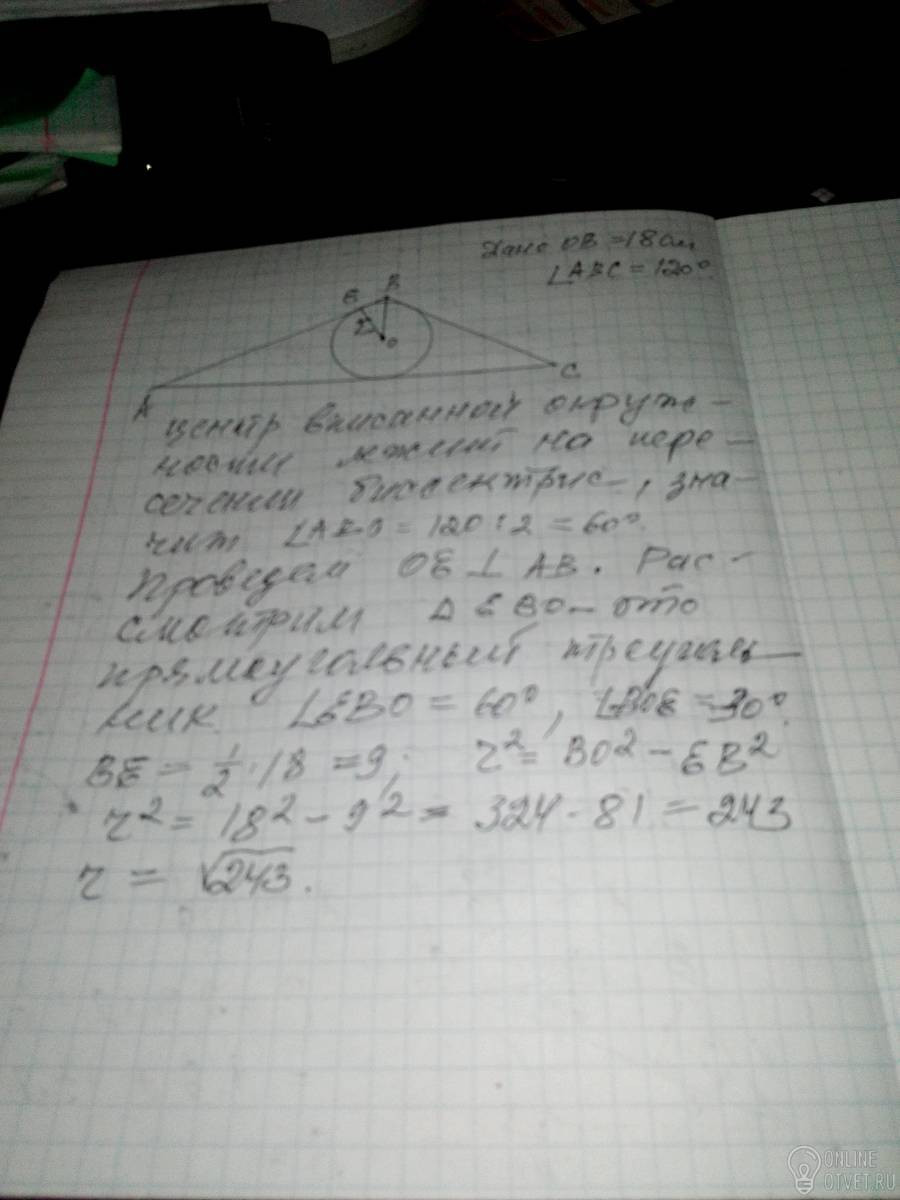 Дано OB = 18 см
∠ABC = 120°
E
B
r
O
A
C
центр вписанной окруж-
ности лежит на пере-
сечении биссектрис, зна-
чит ∠ABO = 120 : 2 = 60°.
Проведем OE ⊥ AB. Рас-
смотрим Δ EBO - это
прямоугольный треуголь-
ник. ∠EBO = 60°, ∠BOE = 30°.
BE = 1/2 · 18 = 9; r² = BO² - EB²
r² = 18² - 9² = 324 - 81 = 243
r = √243.
ONLINE
OTVET.RU